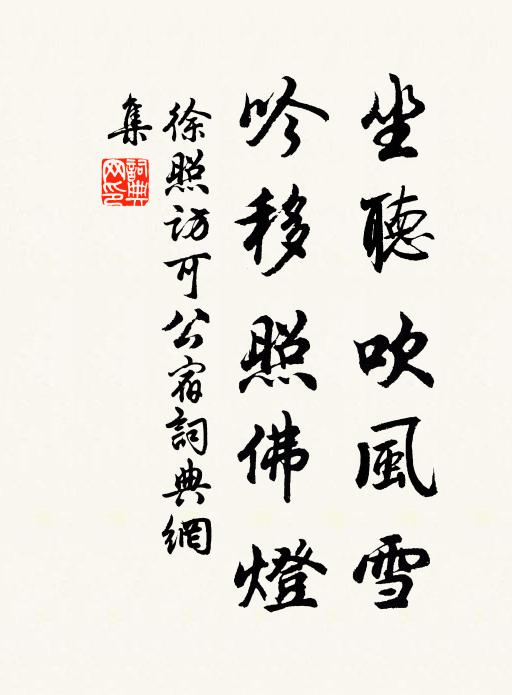 坐聽吹風雪
吟移照佛燈
徐照訪可公宿詞典網
集
詞典
网印